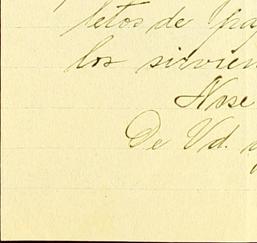 letos de pa
los sirvien
Nse
De Vd.